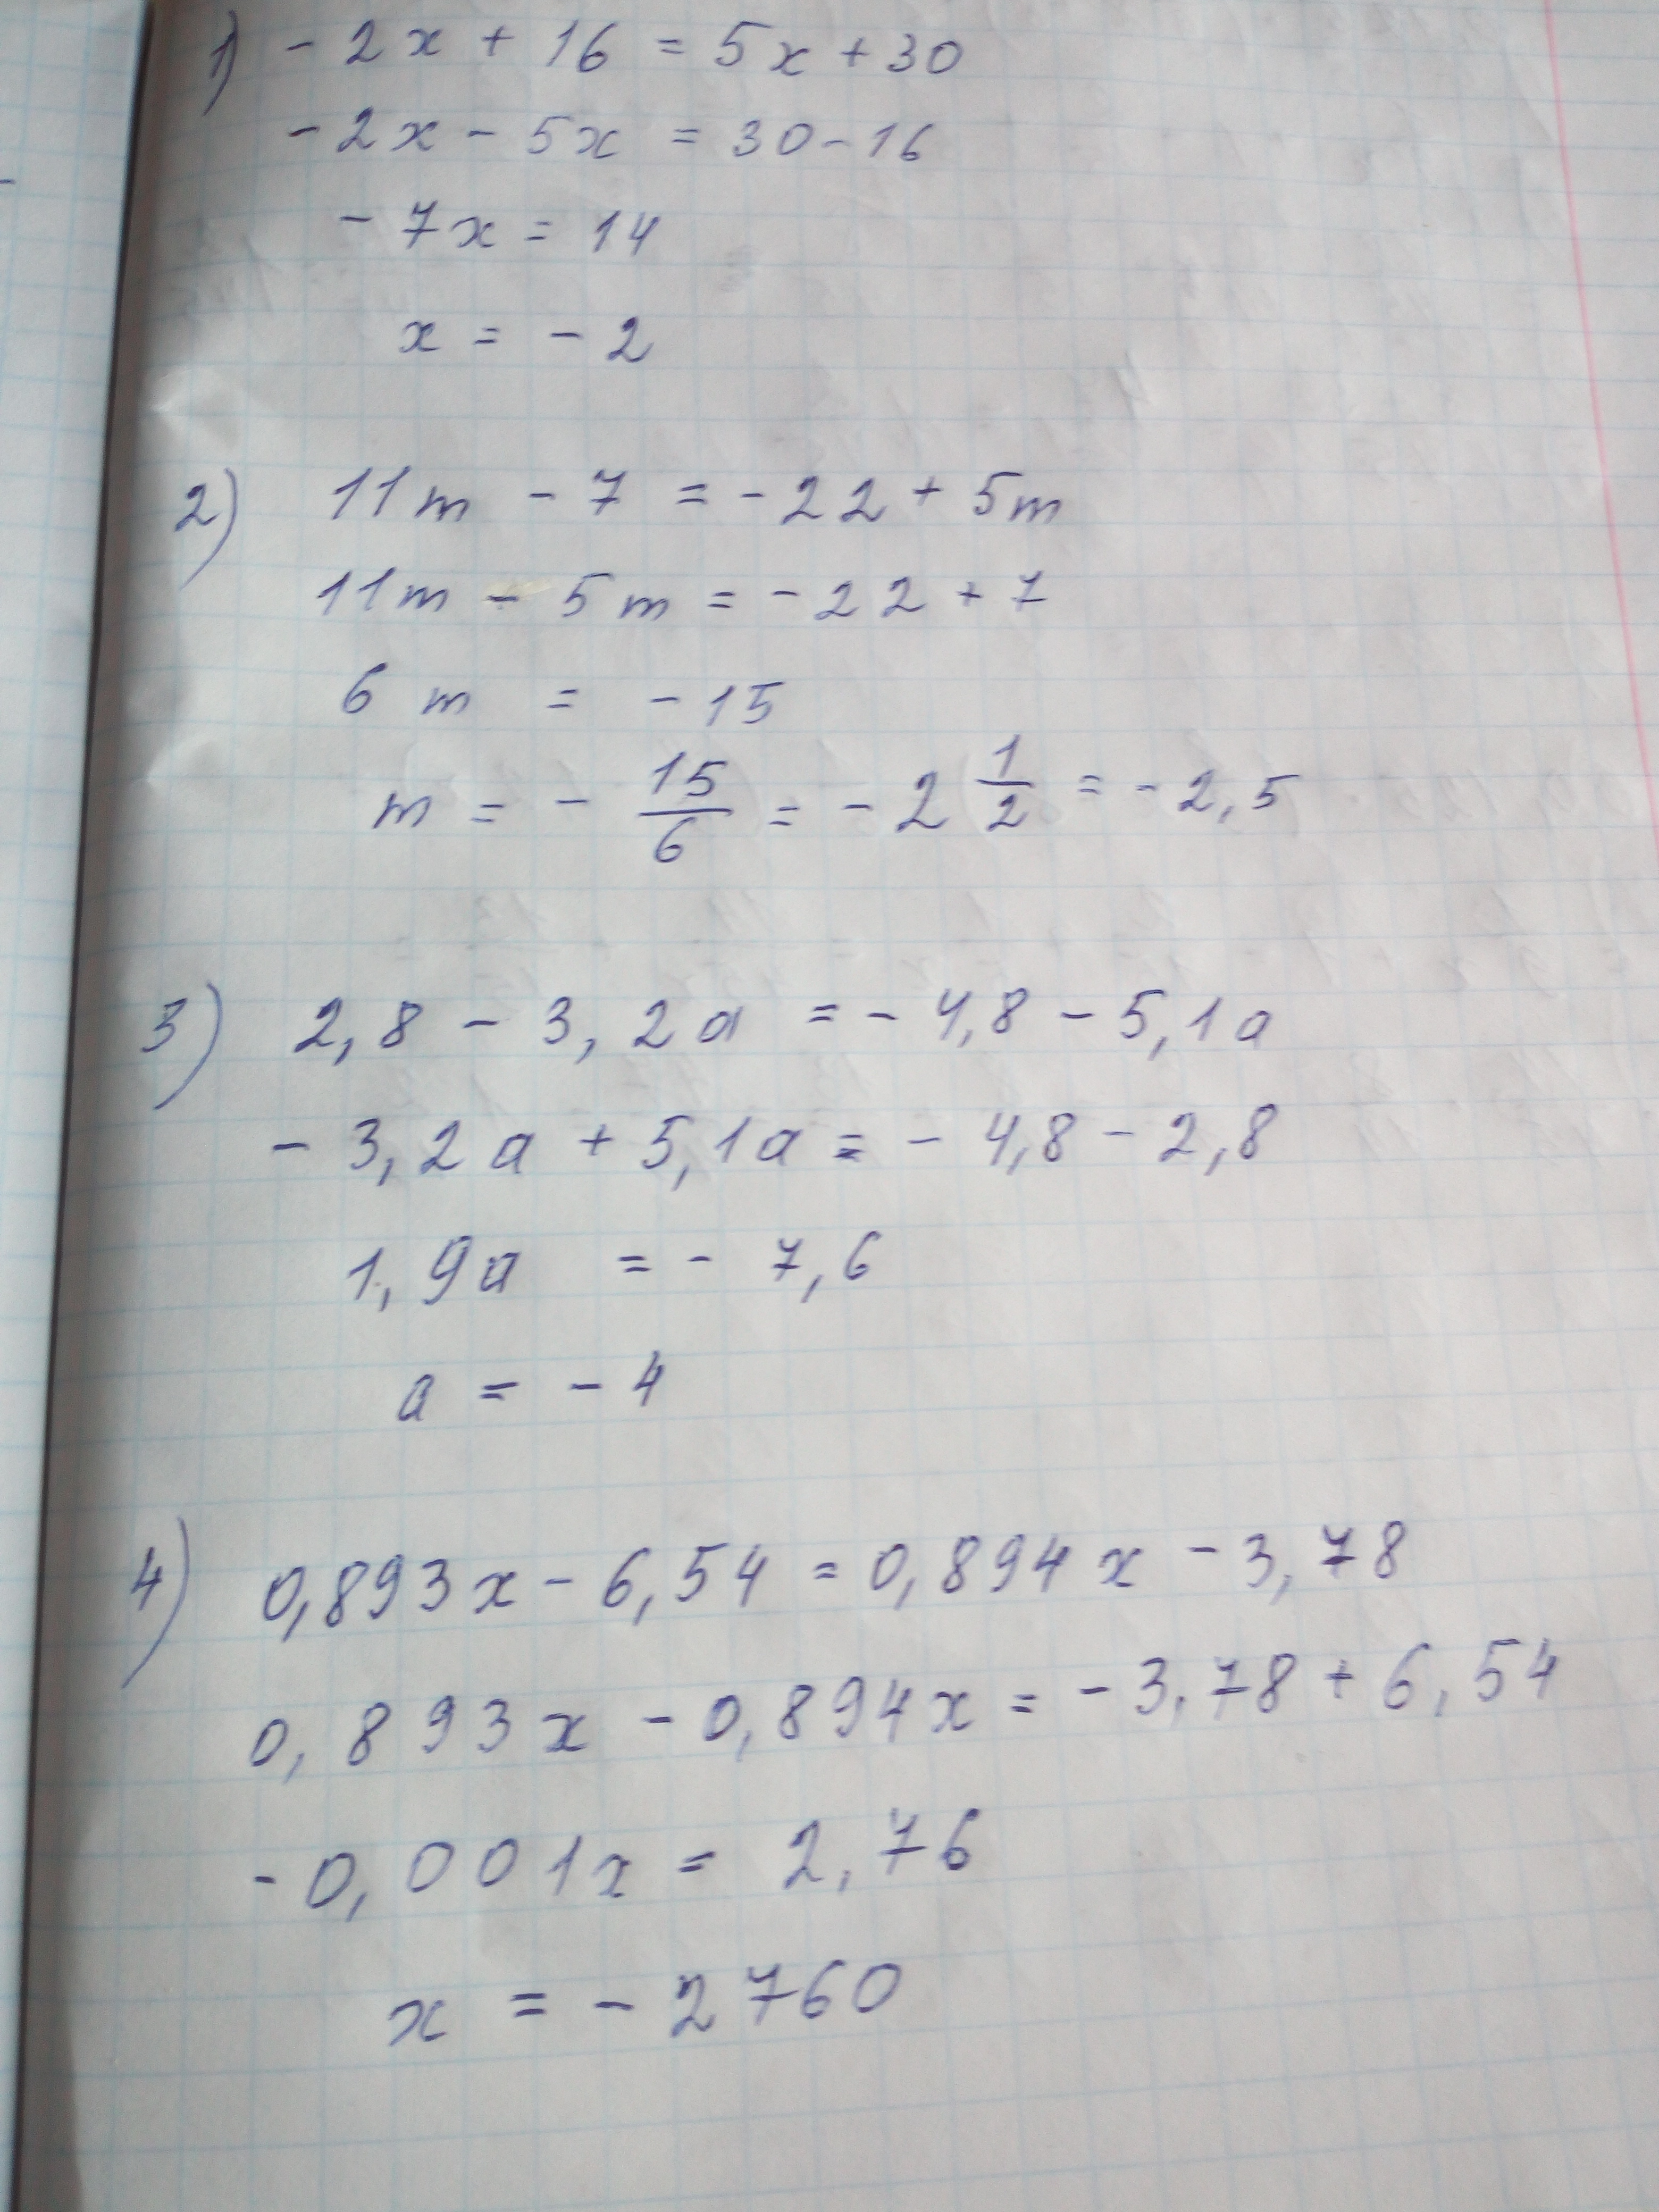 1) - 2x + 16 = 5x + 30
- 2x - 5x = 30 - 16
- 7x = 14
x = - 2
2) 11m - 7 = - 22 + 5m
11m - 5m = - 22 + 7
6m = - 15
m = - 15/6 = - 2 1/2 = - 2,5
3) 2,8 - 3,2a = - 4,8 - 5,1a
- 3,2a + 5,1a = - 4,8 - 2,8
1,9a = - 7,6
a = - 4
4) 0,893x - 6,54 = 0,894x - 3,78
0,893x - 0,894x = - 3,78 + 6,54
- 0,001x = 2,76
x = - 2760